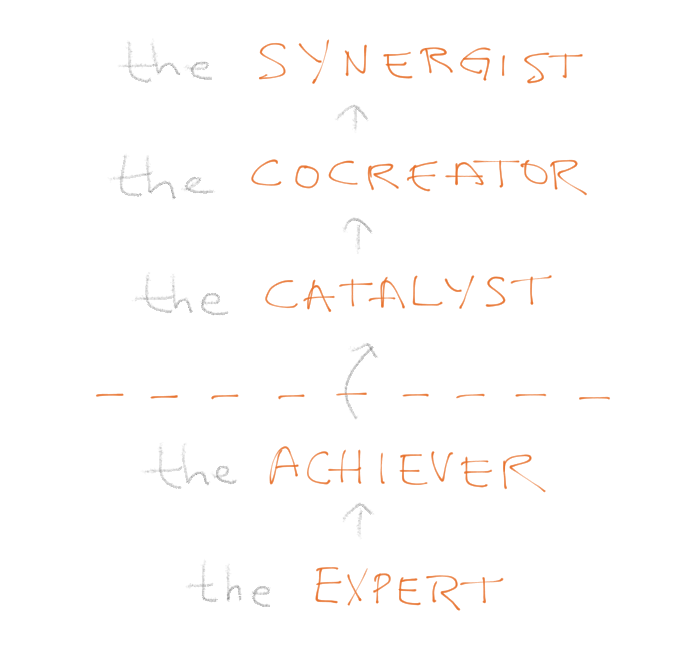 the SYNERGIST
the COCREATOR
the CATALYST
the ACHIEVER
the EXPERT